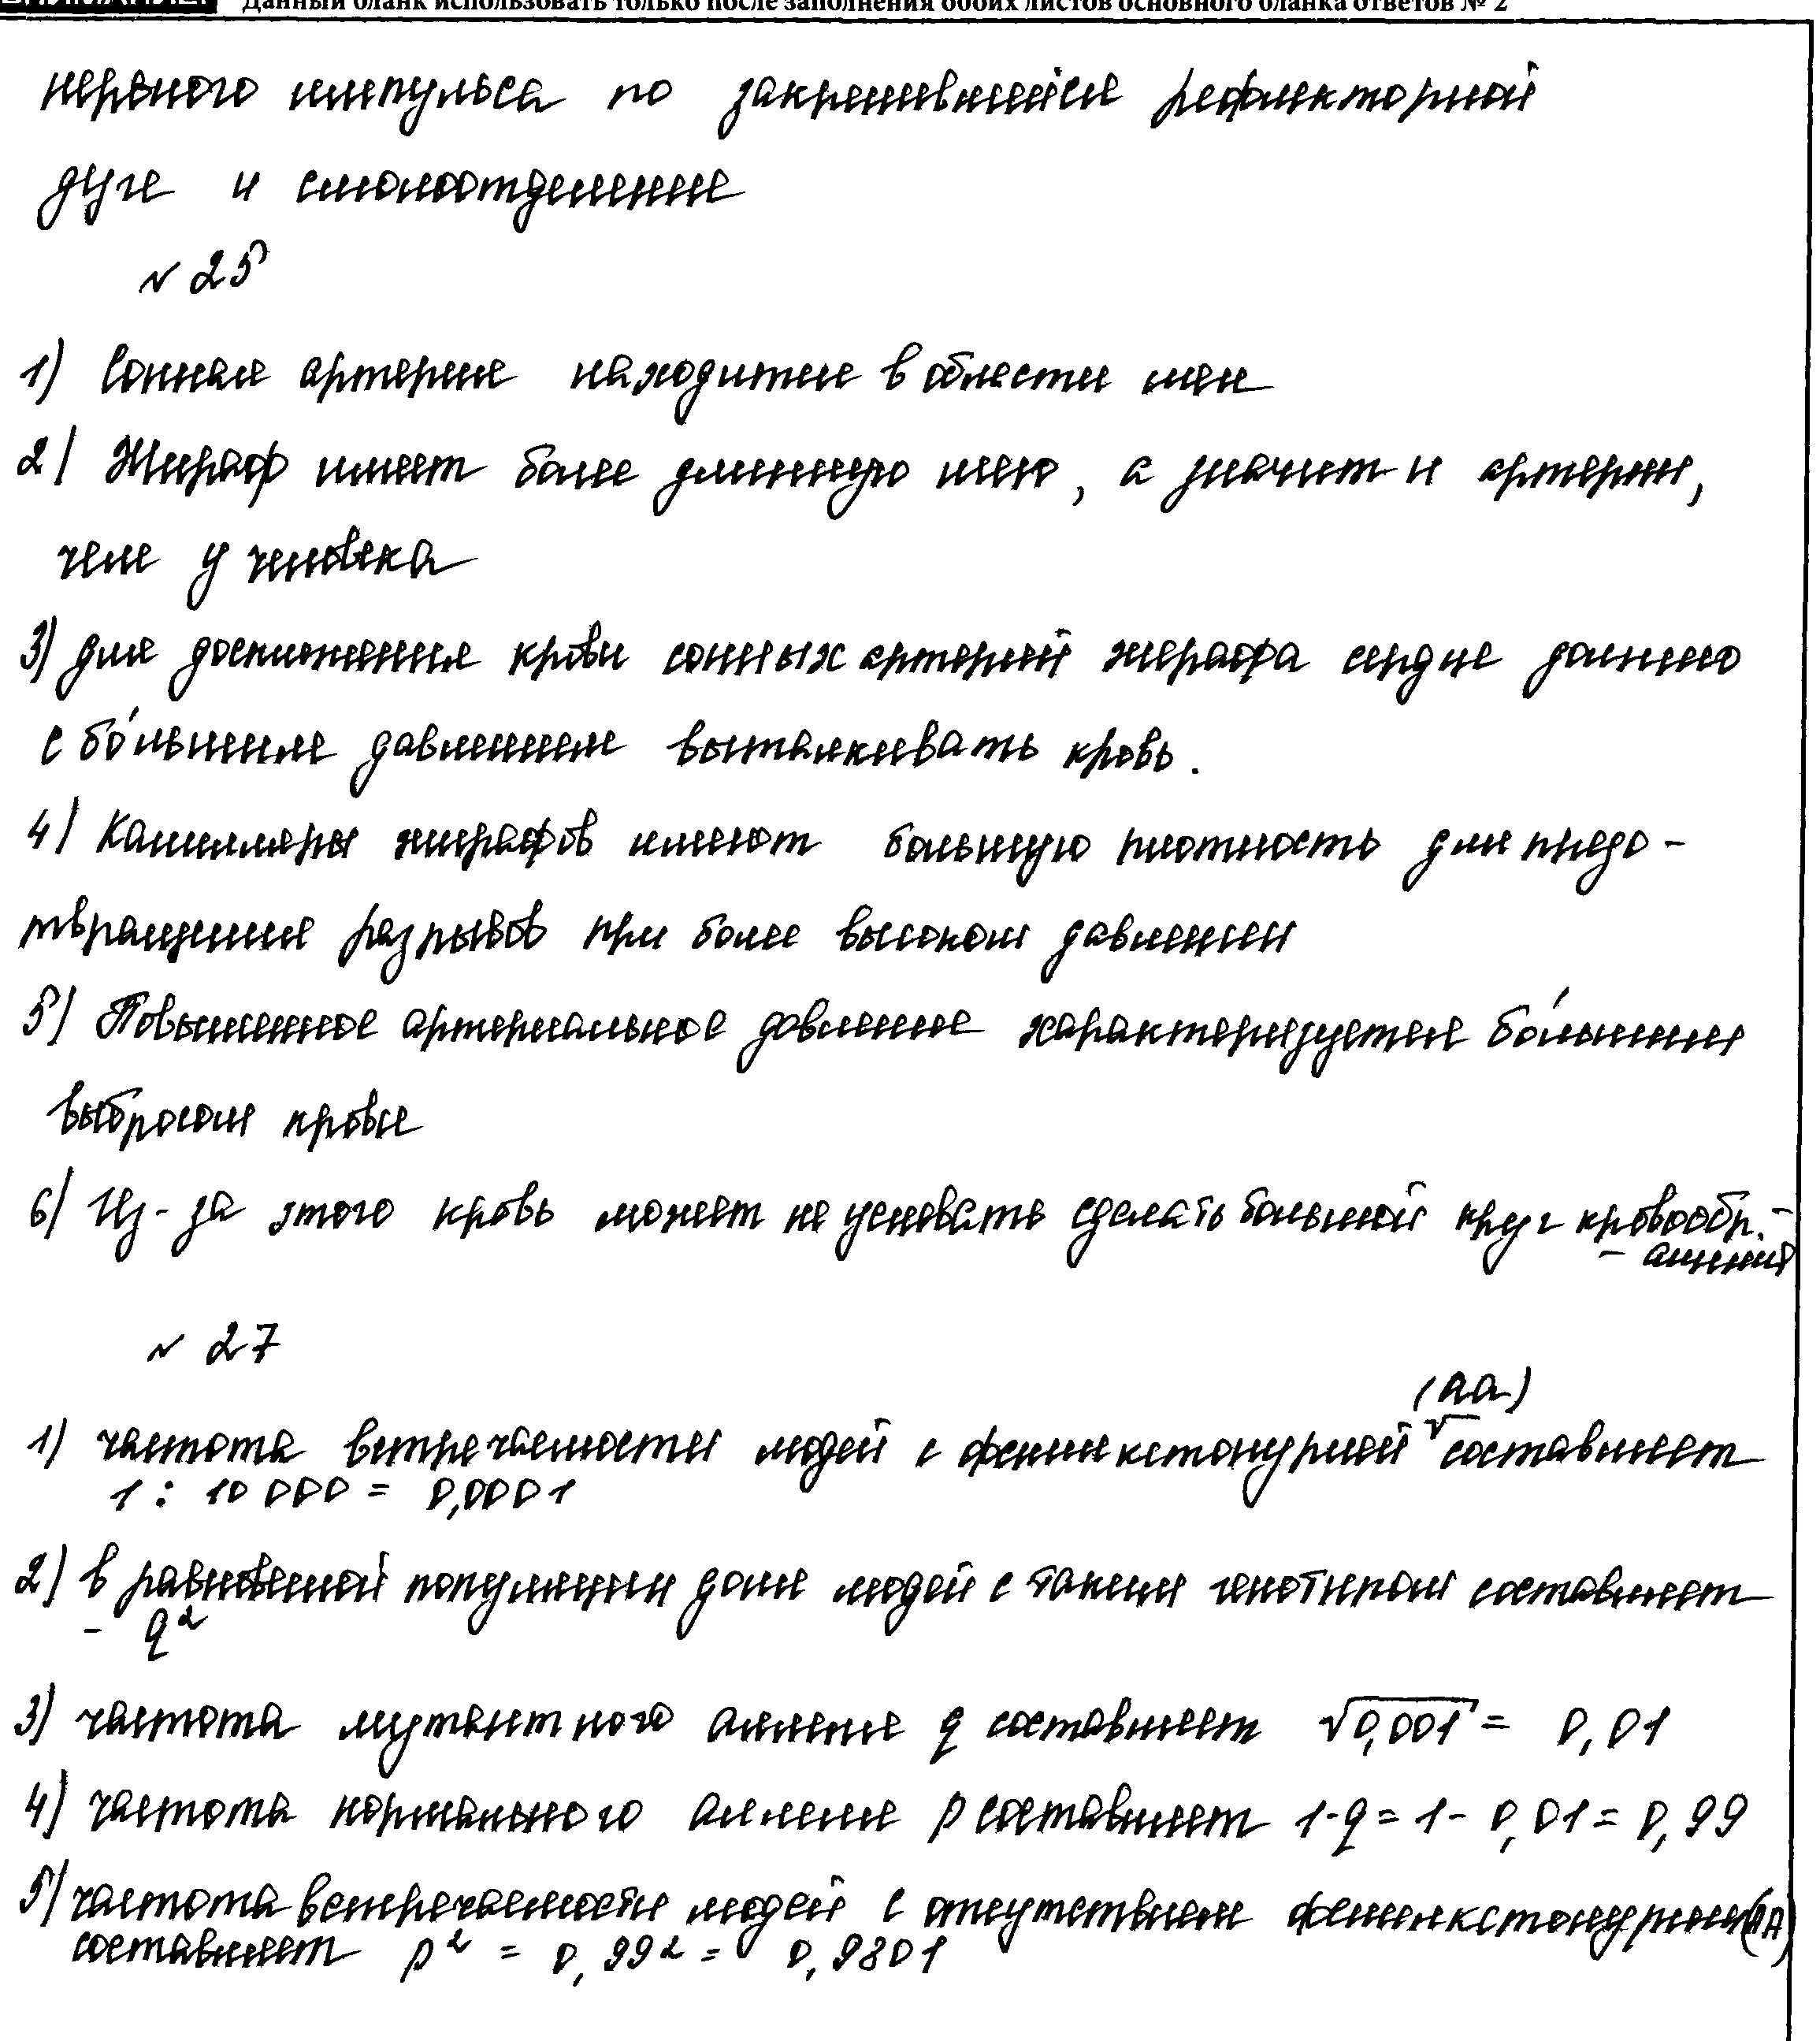 Данный бланк использовать только после заполнения обоих листов основного бланка ответов № 2
нервного импульса по закрепившейся рефлекторной
дуге и слюноотделение
№ 25
1) Сонная артерия находится в области шеи
2) Жираф имеет более длинную шею, а значит и артерии,
чем у человека
3) Для достижения крови сонных артерий жирафа сердце должно
с бо́льшим давлением выталкивать кровь.
4) Капилляры жирафов имеют большую плотность для предо-
твращения разрывов при более высоком давлении
5) Повышенное артериальное давление характеризуется бо́льшим
выбросом крови
6) Из-за этого кровь может не успевать сделать большой круг кровообр.-
- ащения
№ 27
(аа)
1) частота встречаемости людей с фенилкетонурией √ составляет
1 : 10 000 = 0,0001
2) в равновесной популяции доля людей с таким генотипом составляет
- q²
3) частота мутантного аллеля q составляет √0,001 = 0,01
4) частота нормального аллеля p составляет 1-q = 1- 0,01 = 0,99
5) частота встречаемости людей с отсутствием фенилкетонурии (АА)
составляет p² = 0,99² = 0,9801